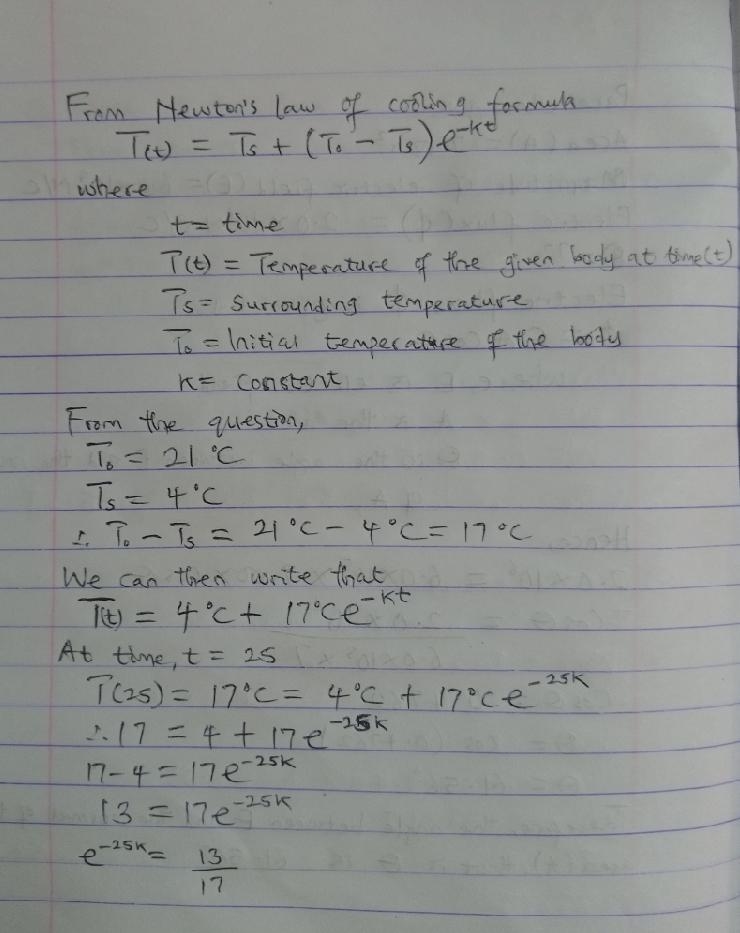 From Newton's law of cooling formula
T(t) = Ts + (To - Ts)e^-kt
where
t = time
T(t) = Temperature of the given body at time(t)
Ts = Surrounding temperature
To = Initial temperature of the body
K = Constant
From the question,
To = 21°C
Ts = 4°C
∴ To - Ts = 21°C - 4°C = 17°C
We can then write that
T(t) = 4°C + 17°Ce^-kt
At time, t = 25
T(25) = 17°C = 4°C + 17°Ce^-25k
∴ 17 = 4 + 17e^-25k
17-4 = 17e^-25k
13 = 17e^-25k
e^-25k = 13/17